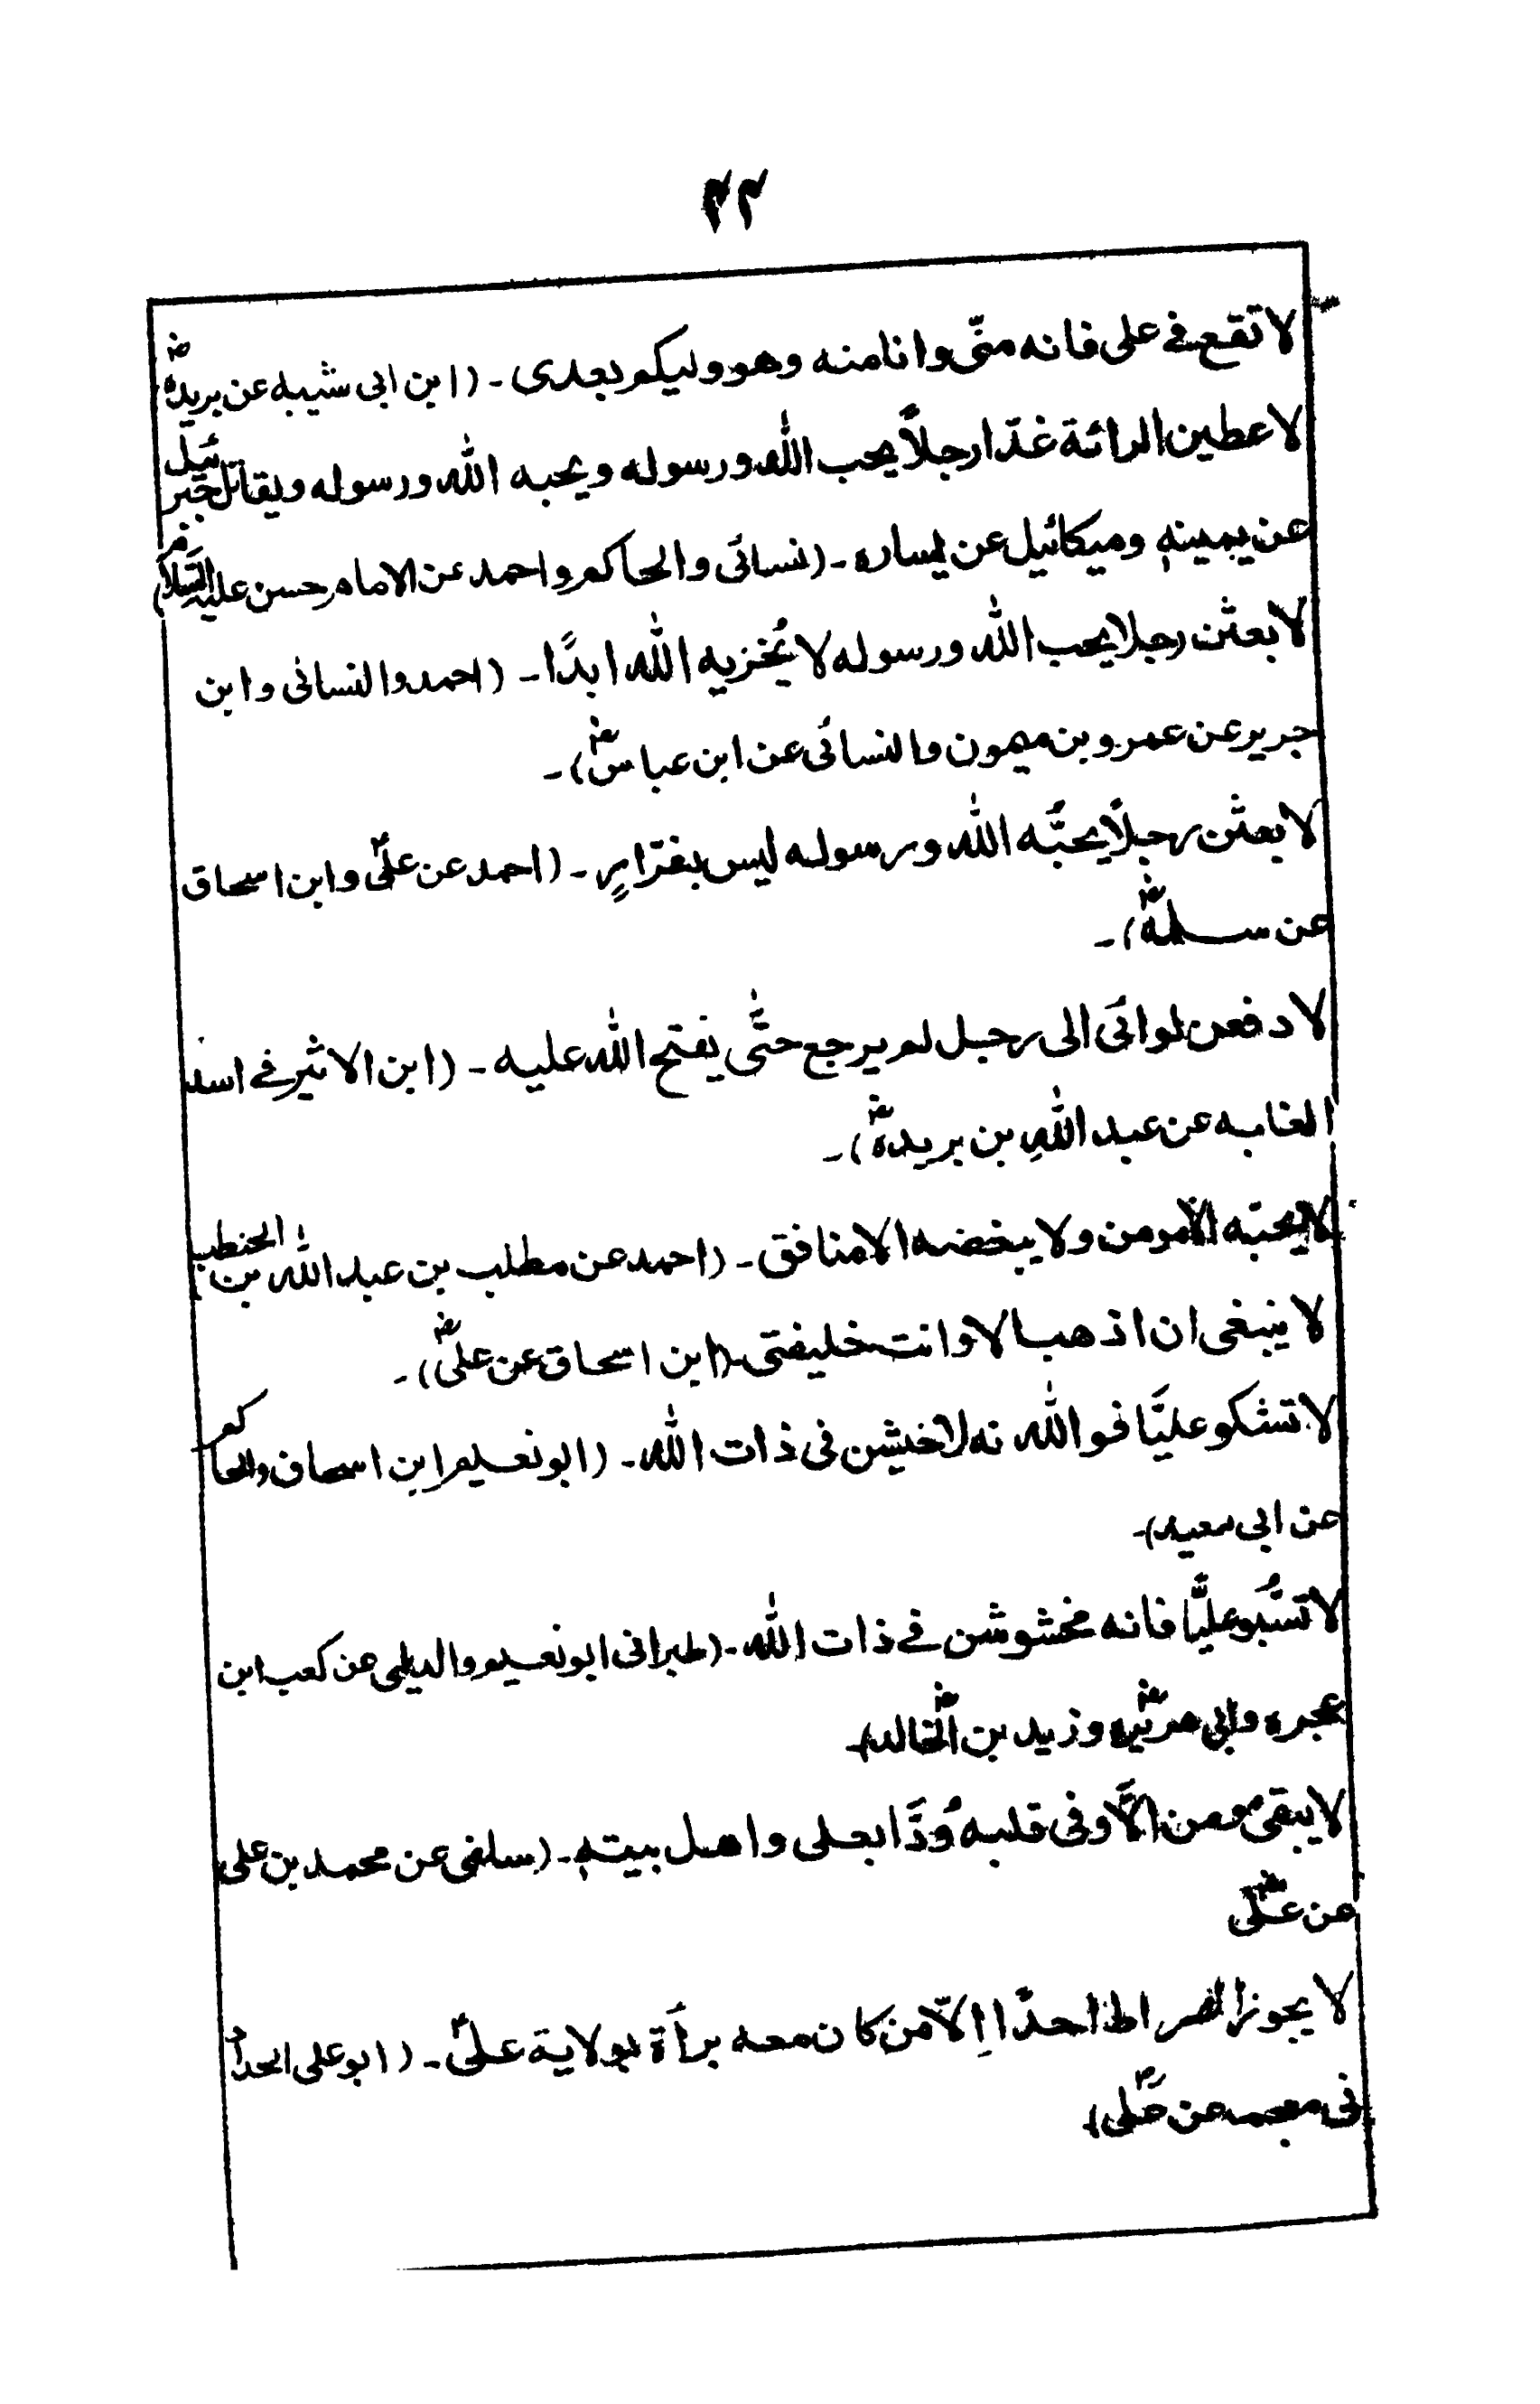 ۴۴
لا تقع فے علی فانه منّی وانا منه وهو وليكم بعدی ۔ (ابن ابی شيبه عن بريدهؓ
لا عطين الرائة غدّا رجلاً يحب الله ورسوله ويحبه الله ورسوله ويقاتل جبرئيل
عن يمينهٖ وميكائيل عن يساره ۔ (نسائی والحاكم واحمد عن الامام حسن عليه السلام)
لا بعثن رجلا يحب الله ورسوله لا يُخزيه الله ابدًا ۔ (احمد والنسائی وابن
جرير عن عمرو بن ميمون والنسائی عن ابن عباسؓ) ۔
لا بعثن رجلاً يحبُّه الله ورسوله ليس بفرّارٍ ۔ (احمد عن علیؑ وابن اسحاق
عن سلمهؓ) ۔
لا دفعن لوائی الی رجل لم يرجع حتّٰی يفتح الله عليه ۔ (ابن الاثير فے اسد
الغابه عن عبد اللهِ بن بريدهؓ) ۔
لا يحبّه الا مومن ولا يبغضه الا منافق ۔ (احمد عن مطلب بن عبد الله بن الحنطب)
لا ينبغی ان اذهب الا وانت خليفتی ۔ (ابن اسحاق عن علیؓ) ۔
لا تشكو عليًّا فو الله نه لاخيشن فی ذات الله ۔ (ابو نعيم ابن اسحاق والحاكم
عن ابی سعيد) ۔
لا تسُبّو عليًّا فانه مخشوشن فے ذات الله ۔ (طبرانی ابو نعيم والديلمی عن كعب ابن
عجره وابی هريرهؓ وزيد بن الخالدؓ) ۔
لا يبقیٰ مومن الّا وفی قلبه وُدًّا بعلی واهل بيتهٖ ۔ (سلفی عن محمد بن علی
عن علیؓ
لا يجوز الصراط احدًا اِلّا من كان معه برأة بولاية علیؑ ۔ (ابو علی الحداد
فی معجمه عن علیؑ)